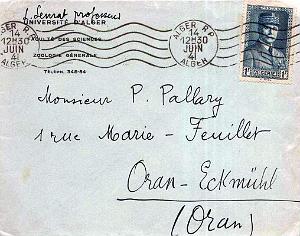 J. Senrat professeur
UNIVERSITÉ D'ALGER
FACULTÉ DES SCIENCES
ZOOLOGIE GÉNÉRALE
TÉLÉPH. 348-84
ALGER R.P.
14
12H30
JUIN
41
ALGER
ALGER R.P.
14
12H30
JUIN
41
ALGER
1F 1F
Monsieur P. Pallary
1 rue Marie-Feuillet
Oran-Eckmühl
(Oran)